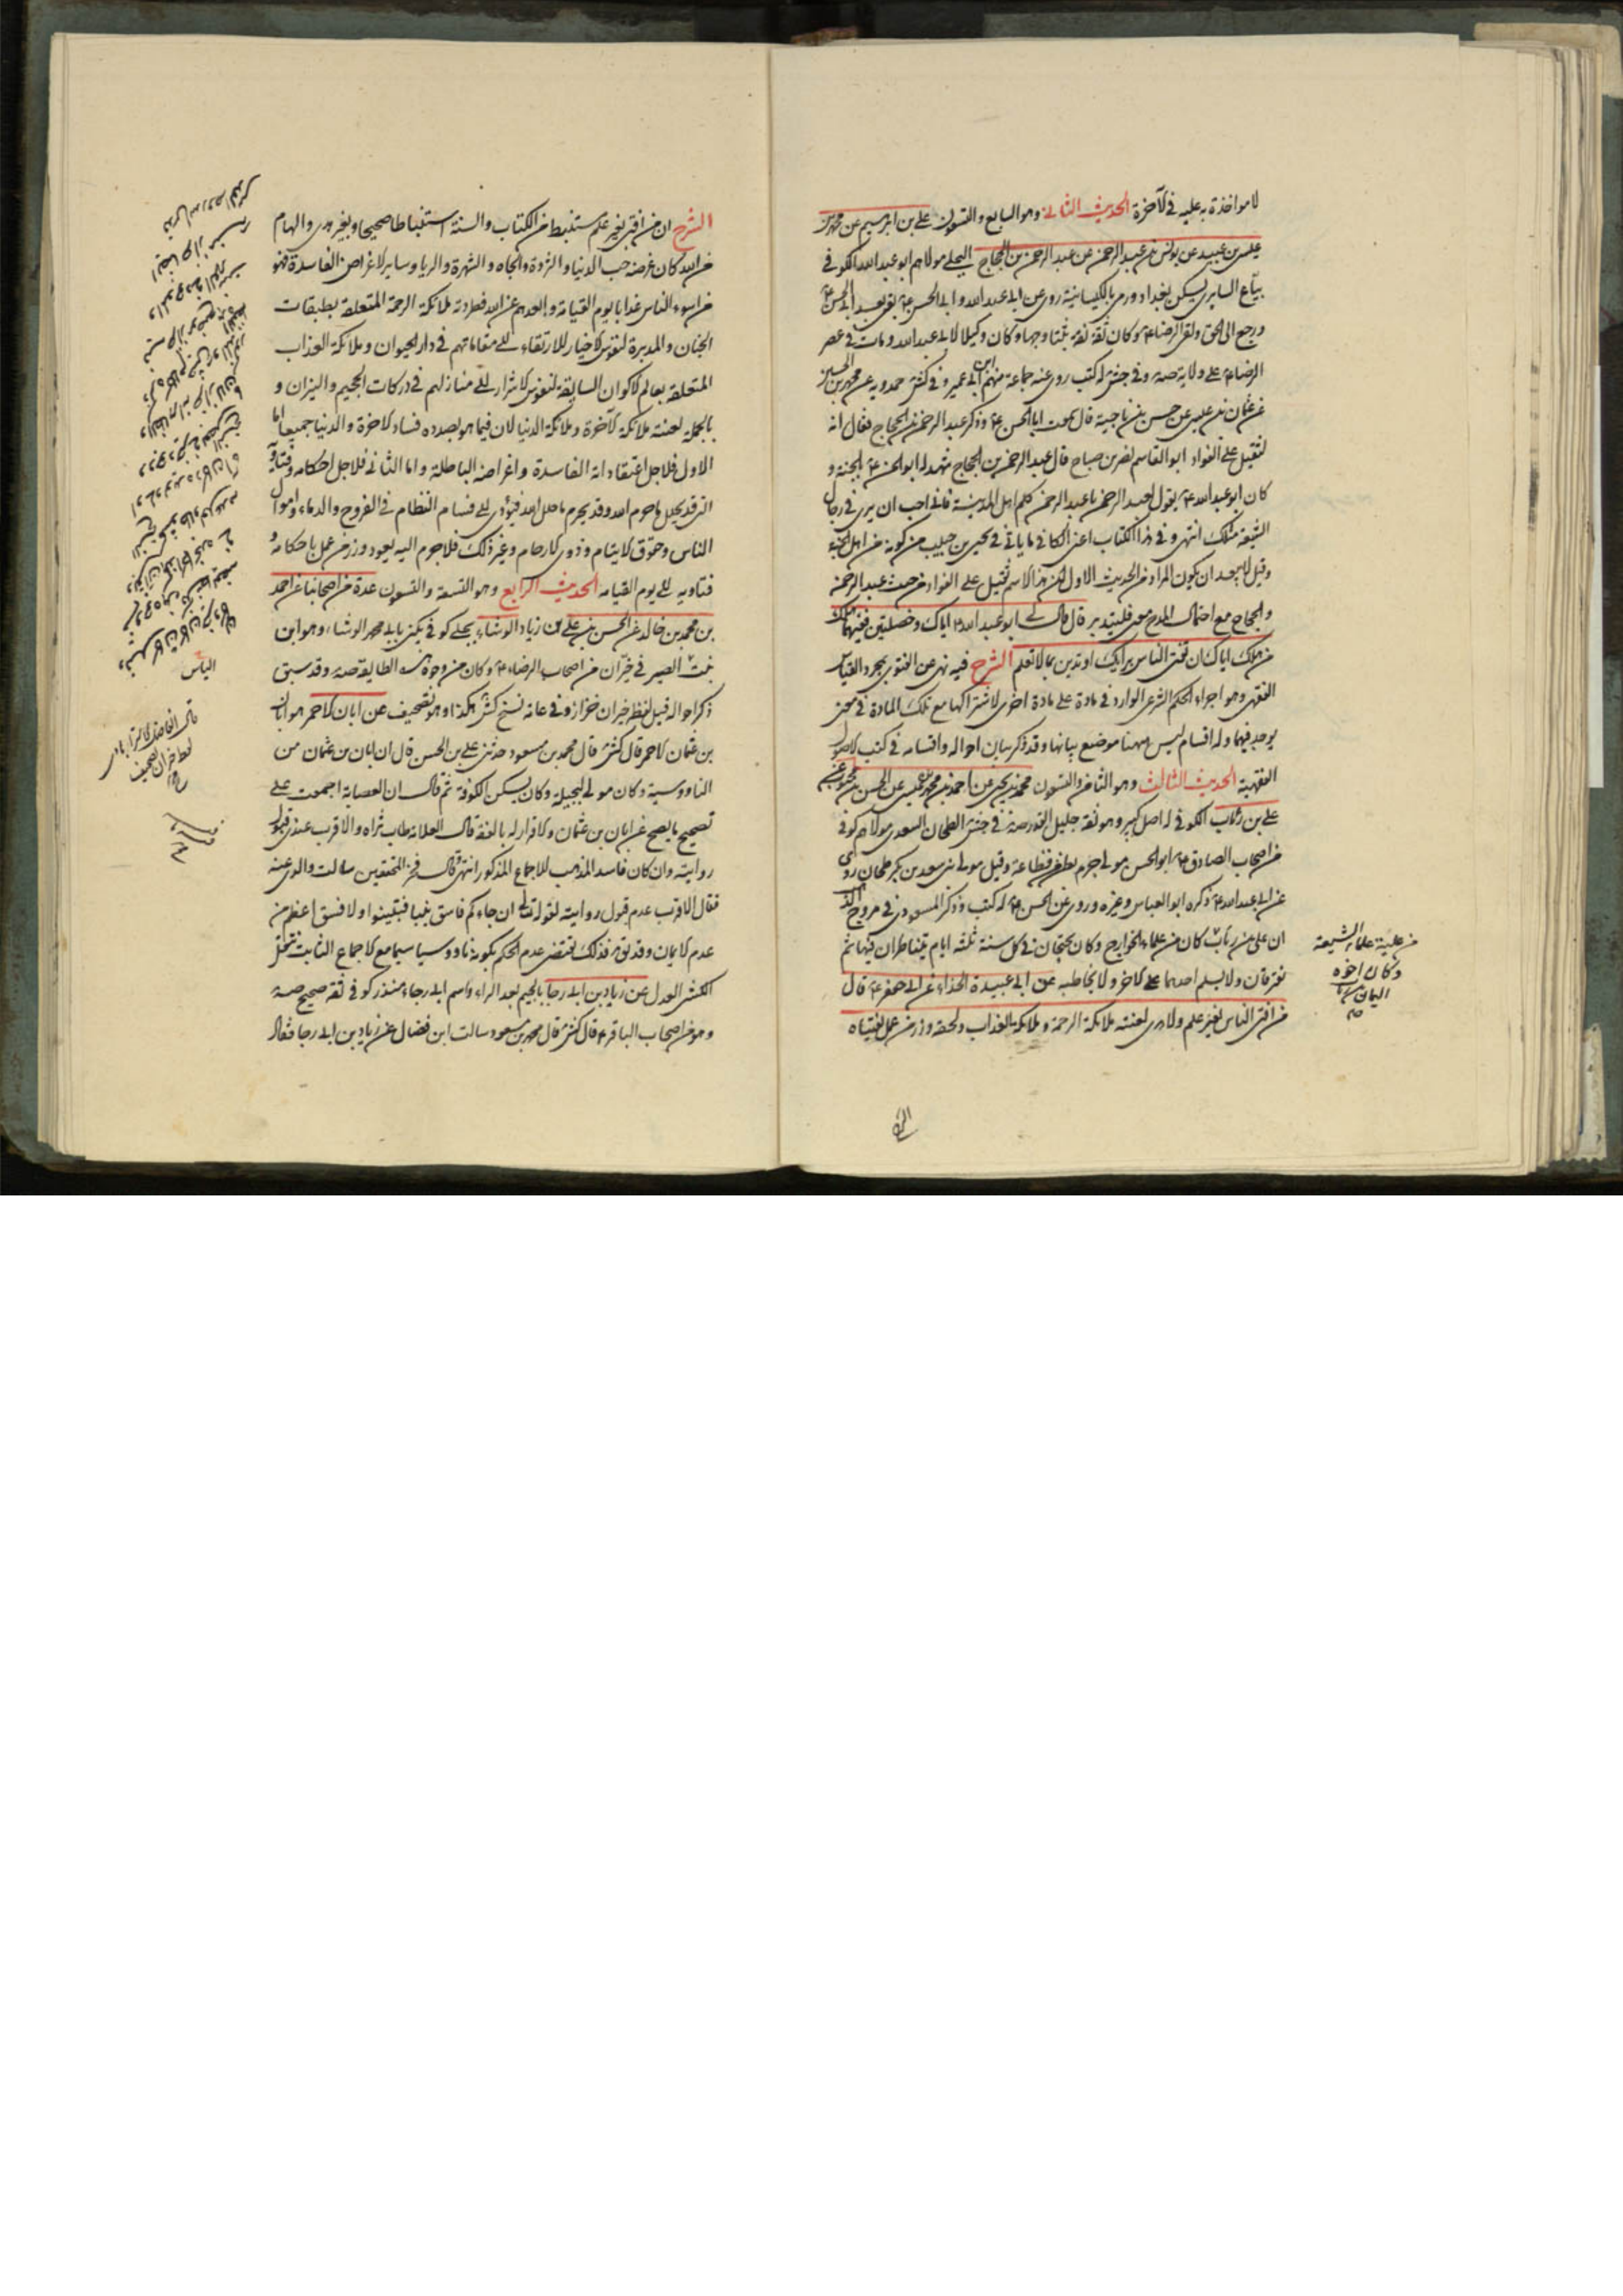 لا مواخذة به عليه في الآخرة الحديث الثاني وهو السابع والتسعون علي بن ابراهيم عن محمد بن
عيسى بن عبيد عن يونس بن عبد الرحمن عن عبد الرحمن بن الحجاج البجلي مولاهم ابو عبد الله الكوفي
بياع السابري سكن بغداد ورمي بالكيسانية روى عن ابي عبد الله وابي الحسن ع بقي بعد ابي الحسن ع
ورجع الى الحق ولقي الرضا ع وكان ثقة ثقة ثبتا وجها وكان وكيلا لابي عبد الله ومات في عصر
الرضا ع على ولاية صه وفي جش له كتب روى عنه جماعة منهم ابن ابي عمير وفي كش حمدويه عن محمد بن الحسين
عن عثمان بن عيسى عن حسن بن ناجية قال سمعت ابا الحسن ع وذكر عبد الرحمن بن الحجاج فقال انه
لثقيل على الفواد ابو القاسم نصر بن صباح قال عبد الرحمن بن الحجاج شهد له ابو الحسن ع بالجنة و
كان ابو عبد الله ع يقول لعبد الرحمن يا عبد الرحمن كلم اهل المدينة فاني احب ان يرى في رجال
الشيعة مثلك انتهى وفي هذا الكتاب اعني الكافي ما ياتي في يحيى بن حبيب من كونه من اهل الجنة
وقيل لا يبعد ان يكون المراد من الحديث الاول ان هذا الاسم ثقيل على الفواد من حيث عبد الرحمن
والحجاج مع احتمال المدح معه فليتدبر قال قال لي ابو عبد الله ع اياك وخصلتين ففيهما هلك
من هلك اياك ان تفتي الناس برايك او تدين بما لا تعلم الشرح فيه نهي عن الفتوى بمجرد القياس
الفقهي وهو اجراء الحكم الشرعي الوارد في مادة على مادة اخرى لاشتراكها مع تلك المادة في معنى
يوجد فيهما وله اقسام ليس ههنا موضع بيانها وقد ذكر بيان احواله واقسامه في كتب الاصول
الفقهية الحديث الثالث وهو الثامن والتسعون محمد بن يحيى عن احمد بن محمد بن عيسى عن الحسن بن محبوب عن
علي بن رئاب الكوفي له اصل كبير وهو ثقة جليل القدر صه في جش الطحان السعدي مولاهم كوفي
من اصحاب الصادق ع ابو الحسن مولى جرم بطن من قضاعة وقيل مولى بني سعد بن بكر طحان روى
عن ابي عبد الله ع ذكره ابو العباس وغيره وروى عن ابي الحسن ع له كتب وذكر المسعودي في مروج الذهب
ان علي بن رئاب كان من علماء الخوارج وكان يجتمعان في كل سنة ثلثة ايام يتناظران فيها ثم
يفترقان ولا يسلم احدهما على الاخر ولا يخاطبه عن ابي عبيدة الحذاء عن ابي جعفر ع قال
من افتى الناس بغير علم ولا هدى لعنته ملائكة الرحمة وملائكة العذاب ولحقه وزر من عمل بفتياه
من علية علماء الشيعة
وكان اخوه
اليمان
الشرح ان من افتى بغير علم مستنبط من الكتاب والسنة استنباطا صحيحا وبغير هدى والهام
من الله كان غرضه حب الدنيا والثروة والجاه والشهرة والريا وساير الاغراض الفاسدة فهو
من اسوء الناس عذابا يوم القيامة وابعدهم عن الله فطردته ملائكة الرحمة المتعلقة بطبقات
الجنان والمدبرة لنفوس الاخيار للارتقاء الى مقاماتهم في دار الحيوان وملائكة العذاب
المتعلقة بعالم الاكوان السايقة لنفوس الاشرار الى منازلهم في دركات الجحيم والنيران و
بالجملة لعنته ملائكة الآخرة وملائكة الدنيا لان فيما هو بصدده فساد الاخرة والدنيا جميعا اما
الاول فلاجل اعتقاداته الفاسدة واغراضه الباطلة واما الثاني فلاجل احكامه وفتاويه
التي قد يحلل ما حرم الله وقد يحرم ما حلل الله فيؤدي الى فساد النظام في الفروج والدماء واموال
الناس وحقوق الايتام وذوي الارحام وغير ذلك فلا جرم اليه يعود وزر من عمل باحكامه و
فتاويه الى يوم القيامة الحديث الرابع وهو التسعة والتسعون عدة من اصحابنا عن احمد
بن محمد بن خالد عن الحسن بن علي بن زياد الوشاء بجلي كوفي يكنى بابي محمد الوشاء وهو ابن
بنت الياس الصيرفي خزان من اصحاب الرضا ع وكان من وجوه هذه الطايفة صه وقد سبق
ذكر احواله قيل لفظ خيران خزاز وفي عامة نسخ كش هكذا وهو تصحيف عن ابان الاحمر هو ابان
بن عثمان الاحمر قال كش قال محمد بن مسعود حدثني علي بن الحسن قال ان ابان بن عثمان من
الناووسية وكان مولى لبجيلة وكان يسكن الكوفة ثم قال ان العصابة اجمعت على
تصحيح ما يصح عن ابان بن عثمان والاقرار له بالفقه قال العلامة طاب ثراه والاقرب عندي قبول
روايته وان كان فاسد المذهب للاجماع المذكور انتهى وقال فخر المحققين سالت والدي عنه
فقال الاقرب عدم قبول روايته لقوله تعالى ان جاءكم فاسق بنبا فتبينوا ولا فسق اعظم من
عدم الايمان وقد يق فذلك يقتضي عدم الحكم بكونه ناووسيا سيما مع الاجماع الثابت بنقل
الكشي العدل عن زياد بن ابي رجا بالجيم بعد الراء واسم ابي رجاء منذر كوفي ثقة صحيح صه
وهو من اصحاب الباقر ع قال كش قال محمد بن مسعود سالت ابن فضال عن زياد بن ابي رجا فقال
الياس
قال الفاضل الاسترابادي
لفظ خزان تصحيف